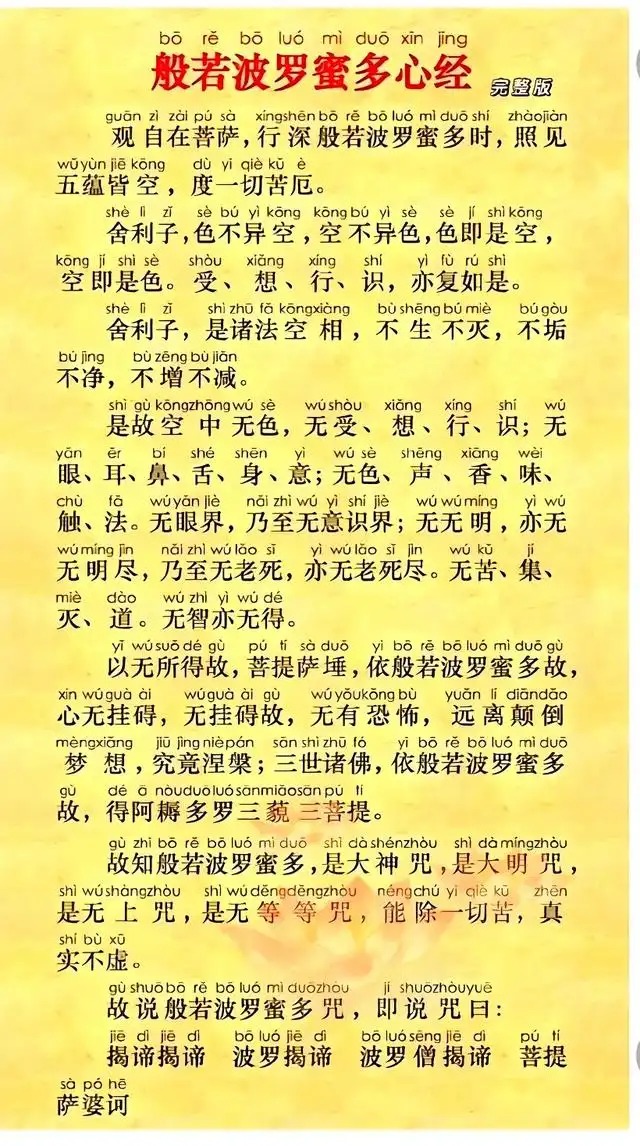 bō rě bō luó mì duō xīn jīng
般若波罗蜜多心经 完整版
guān zì zài pú sà xíngshēn bō rě bō luó mì duō shí zhàojiàn
观自在菩萨，行深般若波罗蜜多时，照见
wǔ yùn jiē kōng dù yī qiè kǔ è
五蕴皆空，度一切苦厄。
shè lì zǐ sè bú yì kōng kōng bú yì sè sè jí shì kōng
舍利子，色不异空，空不异色，色即是空，
kōng jí shì sè shòu xiǎng xíng shí yì fù rú shì
空即是色。受、想、行、识，亦复如是。
shè lì zǐ shì zhū fǎ kōngxiàng bù shēng bú miè bú gòu
舍利子，是诸法空相，不生不灭，不垢
bú jìng bù zēng bù jiǎn
不净，不增不减。
shì gù kōngzhōng wú sè wú shòu xiǎng xíng shí wú
是故空中无色，无受、想、行、识；无
yǎn ěr bí shé shēn yì wú sè shēng xiāng wèi
眼、耳、鼻、舌、身、意；无色、声、香、味、
chù fǎ wú yǎn jiè nǎi zhì wú yì shí jiè wú wú míng yì wú
触、法。无眼界，乃至无意识界；无无明，亦无
wú míng jìn nǎi zhì wú lǎo sǐ yì wú lǎo sǐ jìn wú kǔ jí
无明尽，乃至无老死，亦无老死尽。无苦、集、
miè dào wú zhì yì wú dé
灭、道。无智亦无得。
yǐ wú suǒ dé gù pú tí sà duǒ yī bō rě bō luó mì duō gù
以无所得故，菩提萨埵，依般若波罗蜜多故，
xīn wú guà ài wú guà ài gù wú yǒu kǒng bù yuǎn lí diāndǎo
心无挂碍，无挂碍故，无有恐怖，远离颠倒
mèngxiǎng jiū jìng niè pán sān shì zhū fó yī bō rě bō luó mì duō
梦想，究竟涅槃；三世诸佛，依般若波罗蜜多
gù dé ā nòu duō luó sān miǎo sān pú tí
故，得阿耨多罗三藐三菩提。
gù zhī bō rě bō luó mì duō shì dà shén zhòu shì dà míng zhòu
故知般若波罗蜜多，是大神咒，是大明咒，
shì wú shàng zhòu shì wú děng děng zhòu néng chú yī qiè kǔ zhēn
是无上咒，是无等等咒，能除一切苦，真
shí bù xū
实不虚。
gù shuō bō rě bō luó mì duō zhòu jí shuō zhòu yuē
故说般若波罗蜜多咒，即说咒曰：
jiē dì jiē dì bō luó jiē dì bō luó sēng jiē dì pú tí
揭谛揭谛 波罗揭谛 波罗僧揭谛 菩提
sà pó hē
萨婆诃